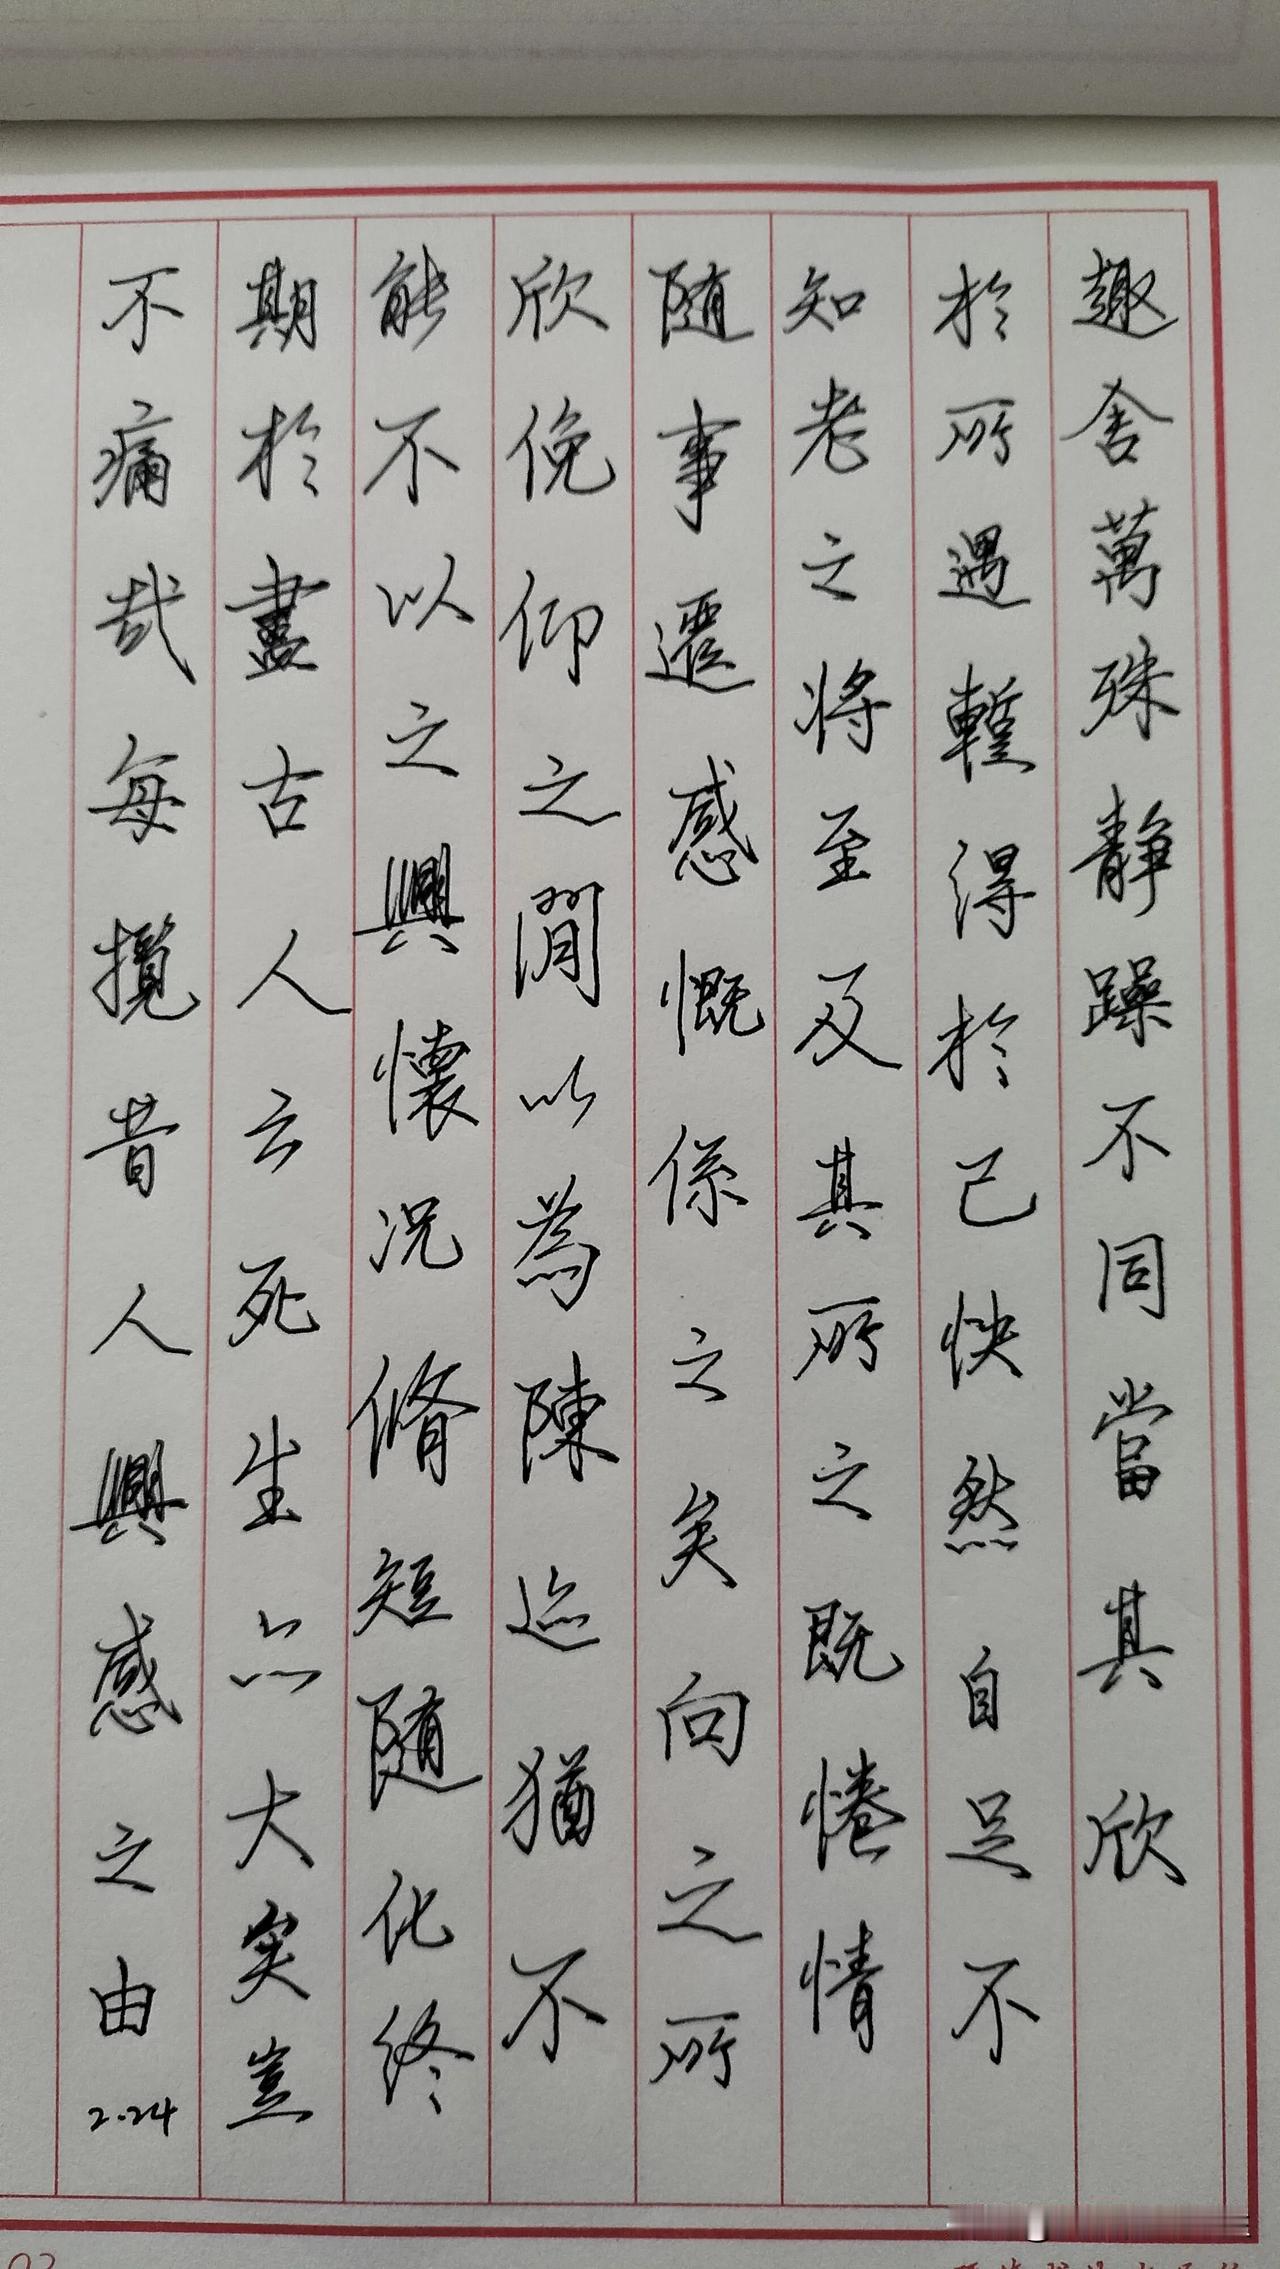 趣舍萬殊靜躁不同當其欣
於所遇蹔得於己怏然自足不
知老之将至及其所之既惓情
随事遷感慨係之矣向之所
欣俛仰之閒以為陳迹猶不
能不以之興懷況脩短随化終
期於盡古人云死生亦大矣豈
不痛哉每攬昔人興感之由
2.24